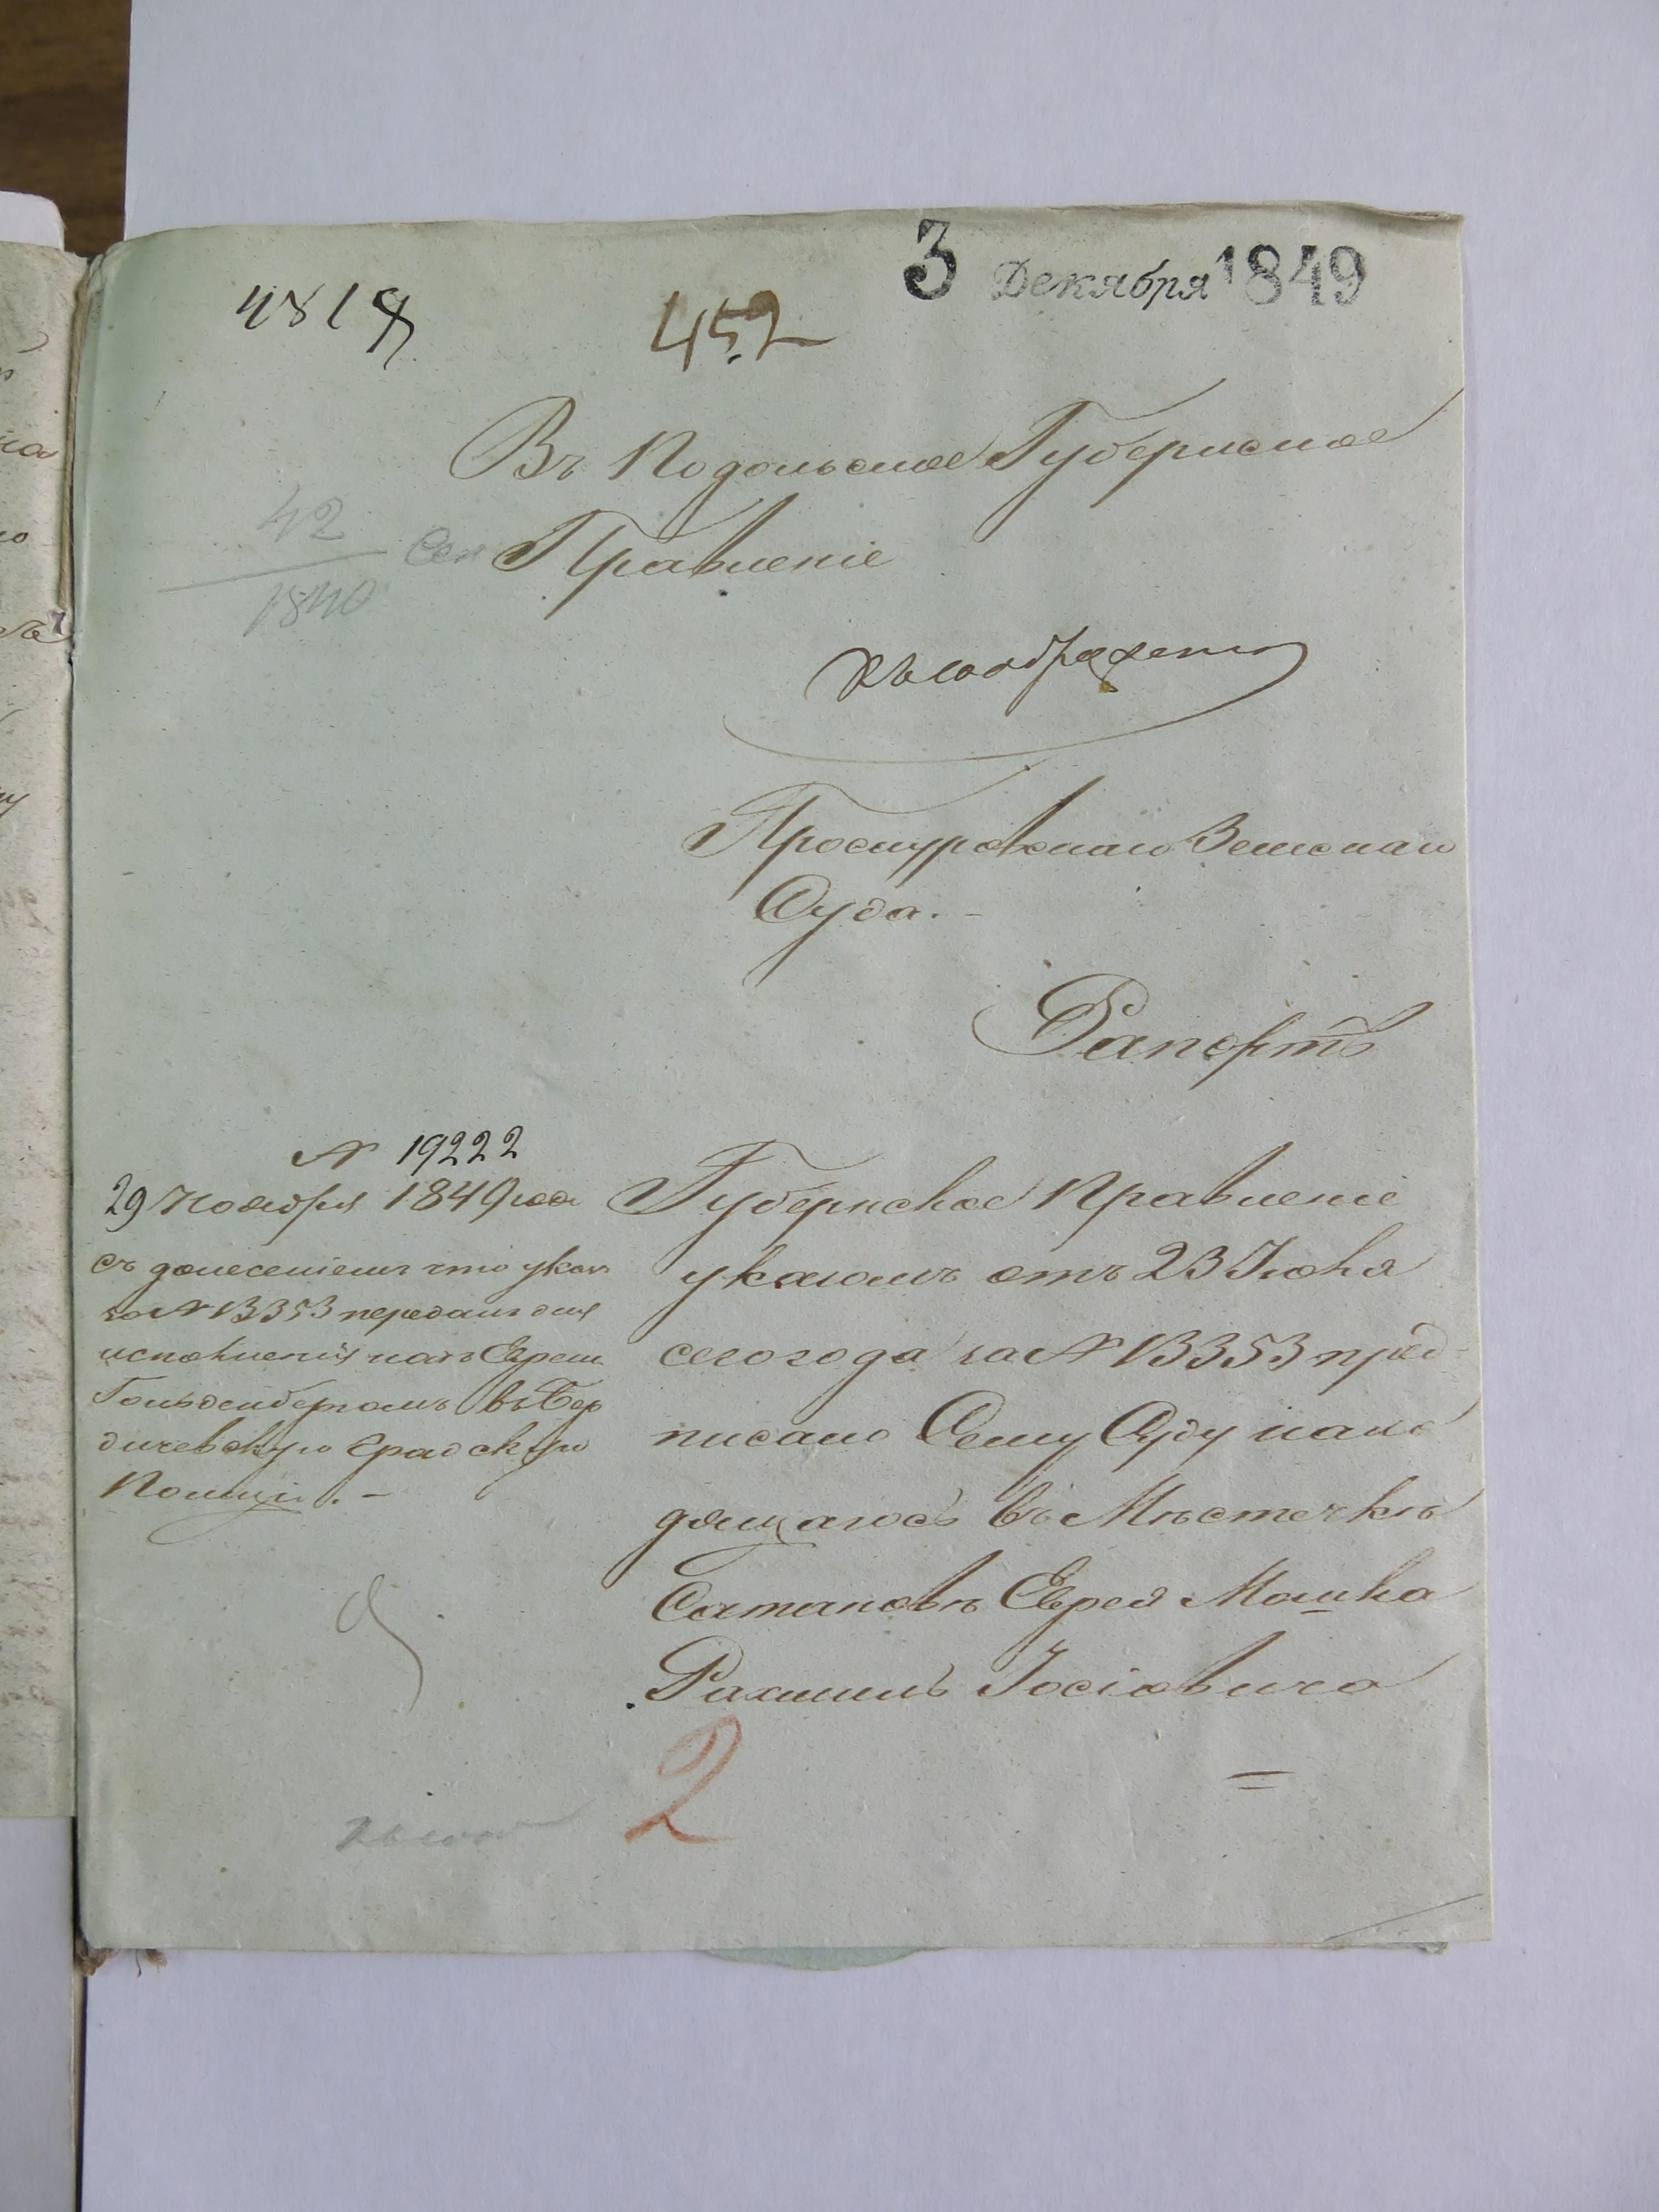 3 Декабря 1849
4818
452
Въ Подольское Губернское
42
1840
Правленіе
Къ соображенію
Проскуровскаго Земскаго
Суда. -
Рапортъ
№ 19222
29 Ноября 1849 года
съ донесеніемъ что указъ
за № 13353 переданъ для
исполненія надъ Евреем
Гольденбергомъ въ Бер
дичевскую Градскую
Полицію. -
Губернское Правленіе
указомъ отъ 23 Іюня
сего года за № 13353 пред-
писало Сему Суду нахо
дящагося въ Мѣстечкѣ
Сатановѣ Еврея Мошка
Рахмиль Іосіовича
2